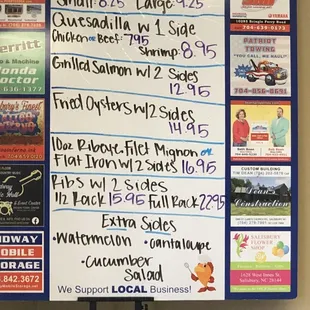 Small 8.25 Large 9.25
Quesadilla w 1 Side
Chicken or Beef: 7.95
Shrimp: 8.95
Grilled Salmon w/ 2 Sides
12.95
Fried Oysters w/2 Sides
14.95
10oz Ribeye, Filet Mignon or
Flat Iron w/2 sides 16.95
Ribs w/ 2 Sides
1/2 Rack 15.95 Full Rack 22.95
Extra Sides
•Watermelon •Cantaloupe
•Cucumber
Salad
We Support LOCAL Business!
erritt
& Machine
Honda
Doctor
636-1377
bury's Finest
MIDWAY
MOBILE
STORAGE
.842.3672
704-639-0173
PATRIOT
TOWING
"YOU CALL, WE HAUL"
704-856-8691
CUSTOM BUILDING
Dean's
Construction
SALISBURY
FLOWER
SHOP
1628 West Innes St
Salisbury, NC 28144